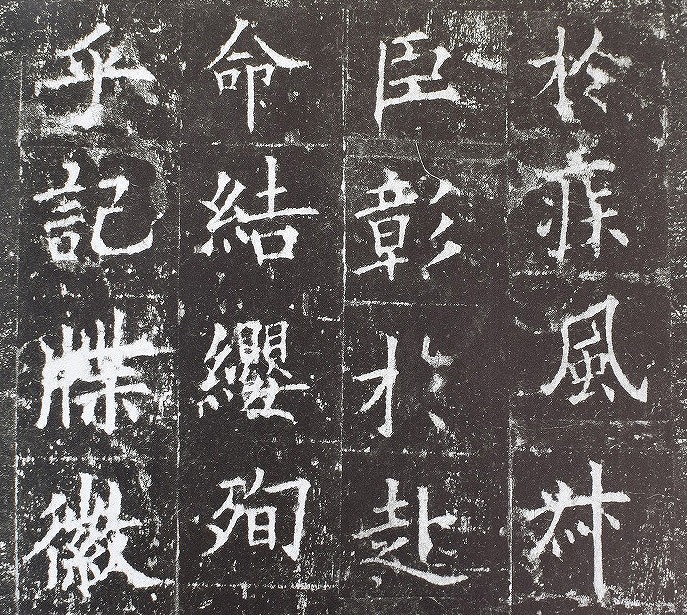 於疾風叔
臣彰於赴
命結纓殉
乎記牒徽